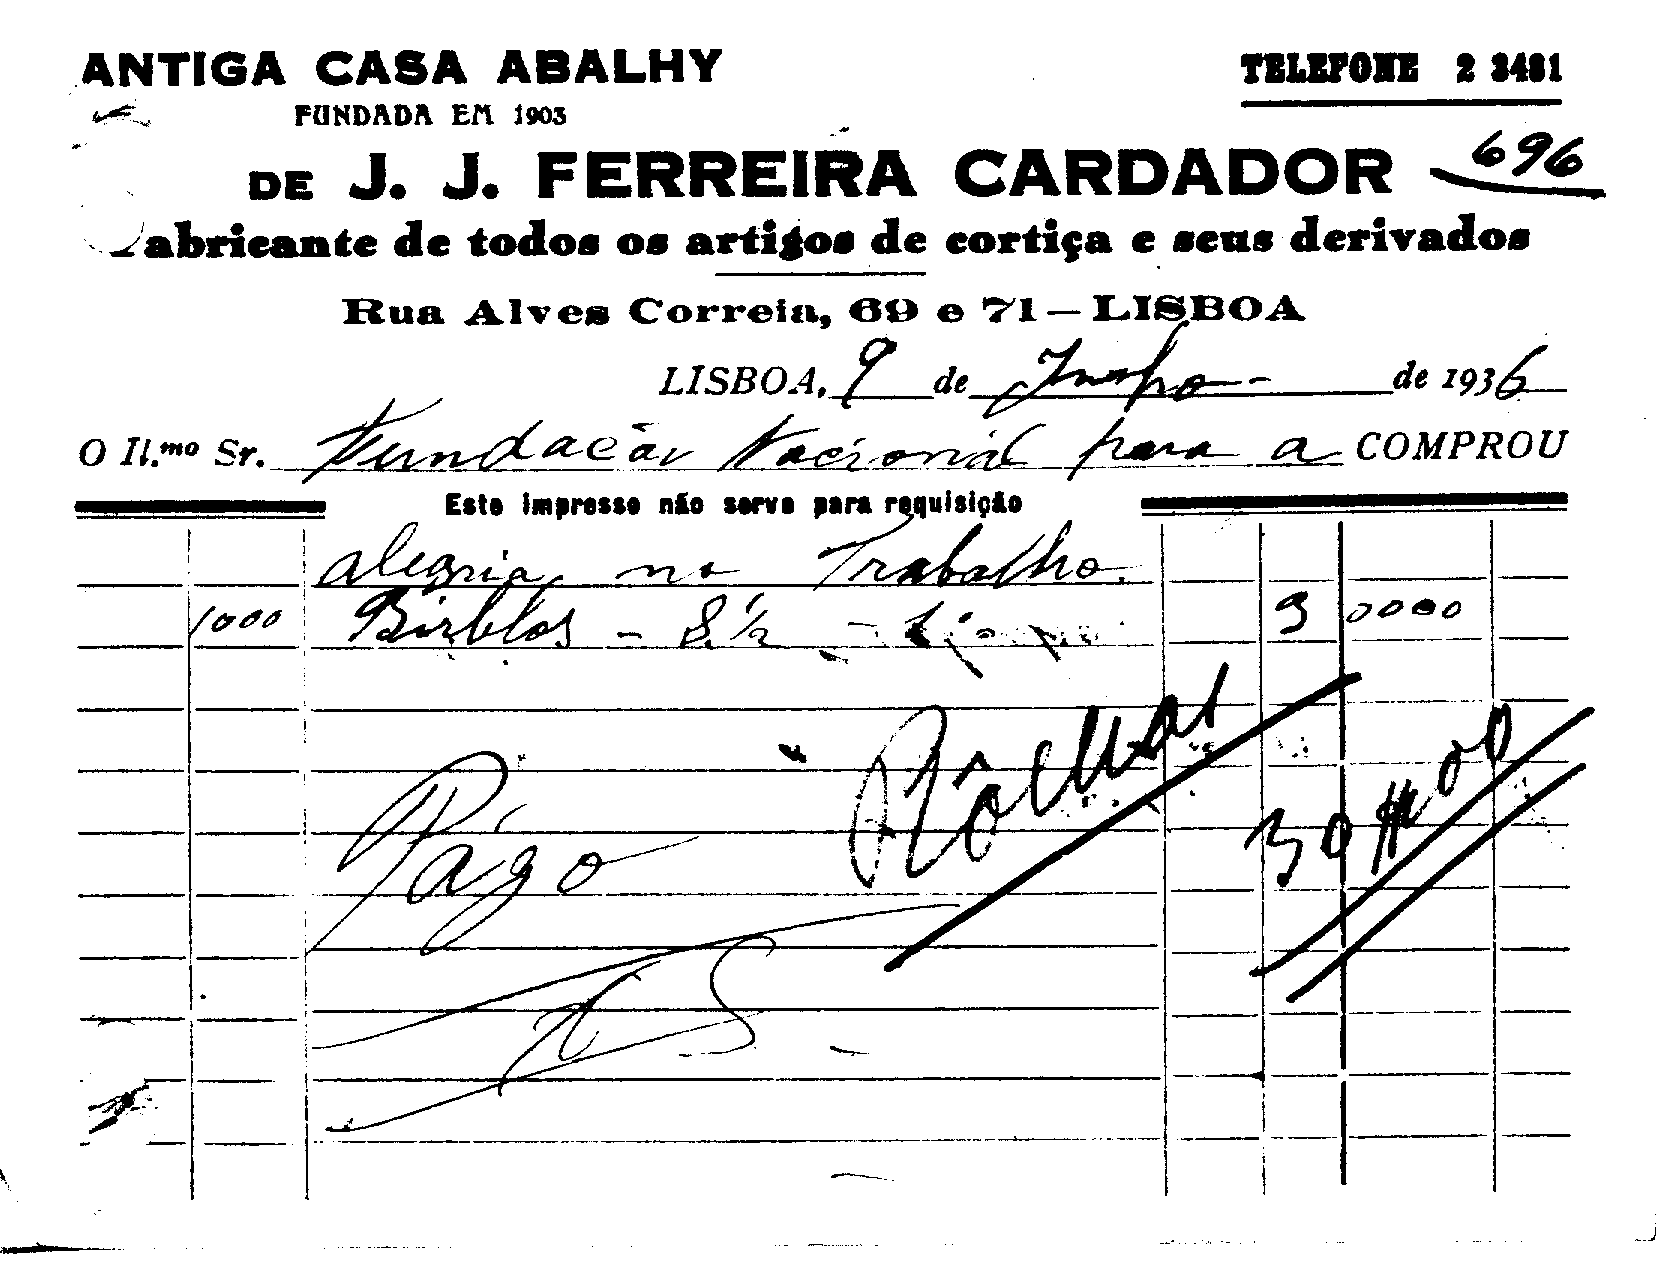 ANTIGA CASA ABALHY
TELEFONE 2 3481
FUNDADA EM 1903
696
DE J. J. FERREIRA CARDADOR
abricante de todos os artigos de cortiça e seus derivados
Rua Alves Correia, 69 e 71 – LISBOA
LISBOA, 9 de Junho de 1936
O Il.mo Sr. Fundação Nacional para a COMPROU
Este impresso não serve para requisição
alegria no Trabalho.
1000 - 8 1/2 - 3 0000
Rolhas
30$00
Págo